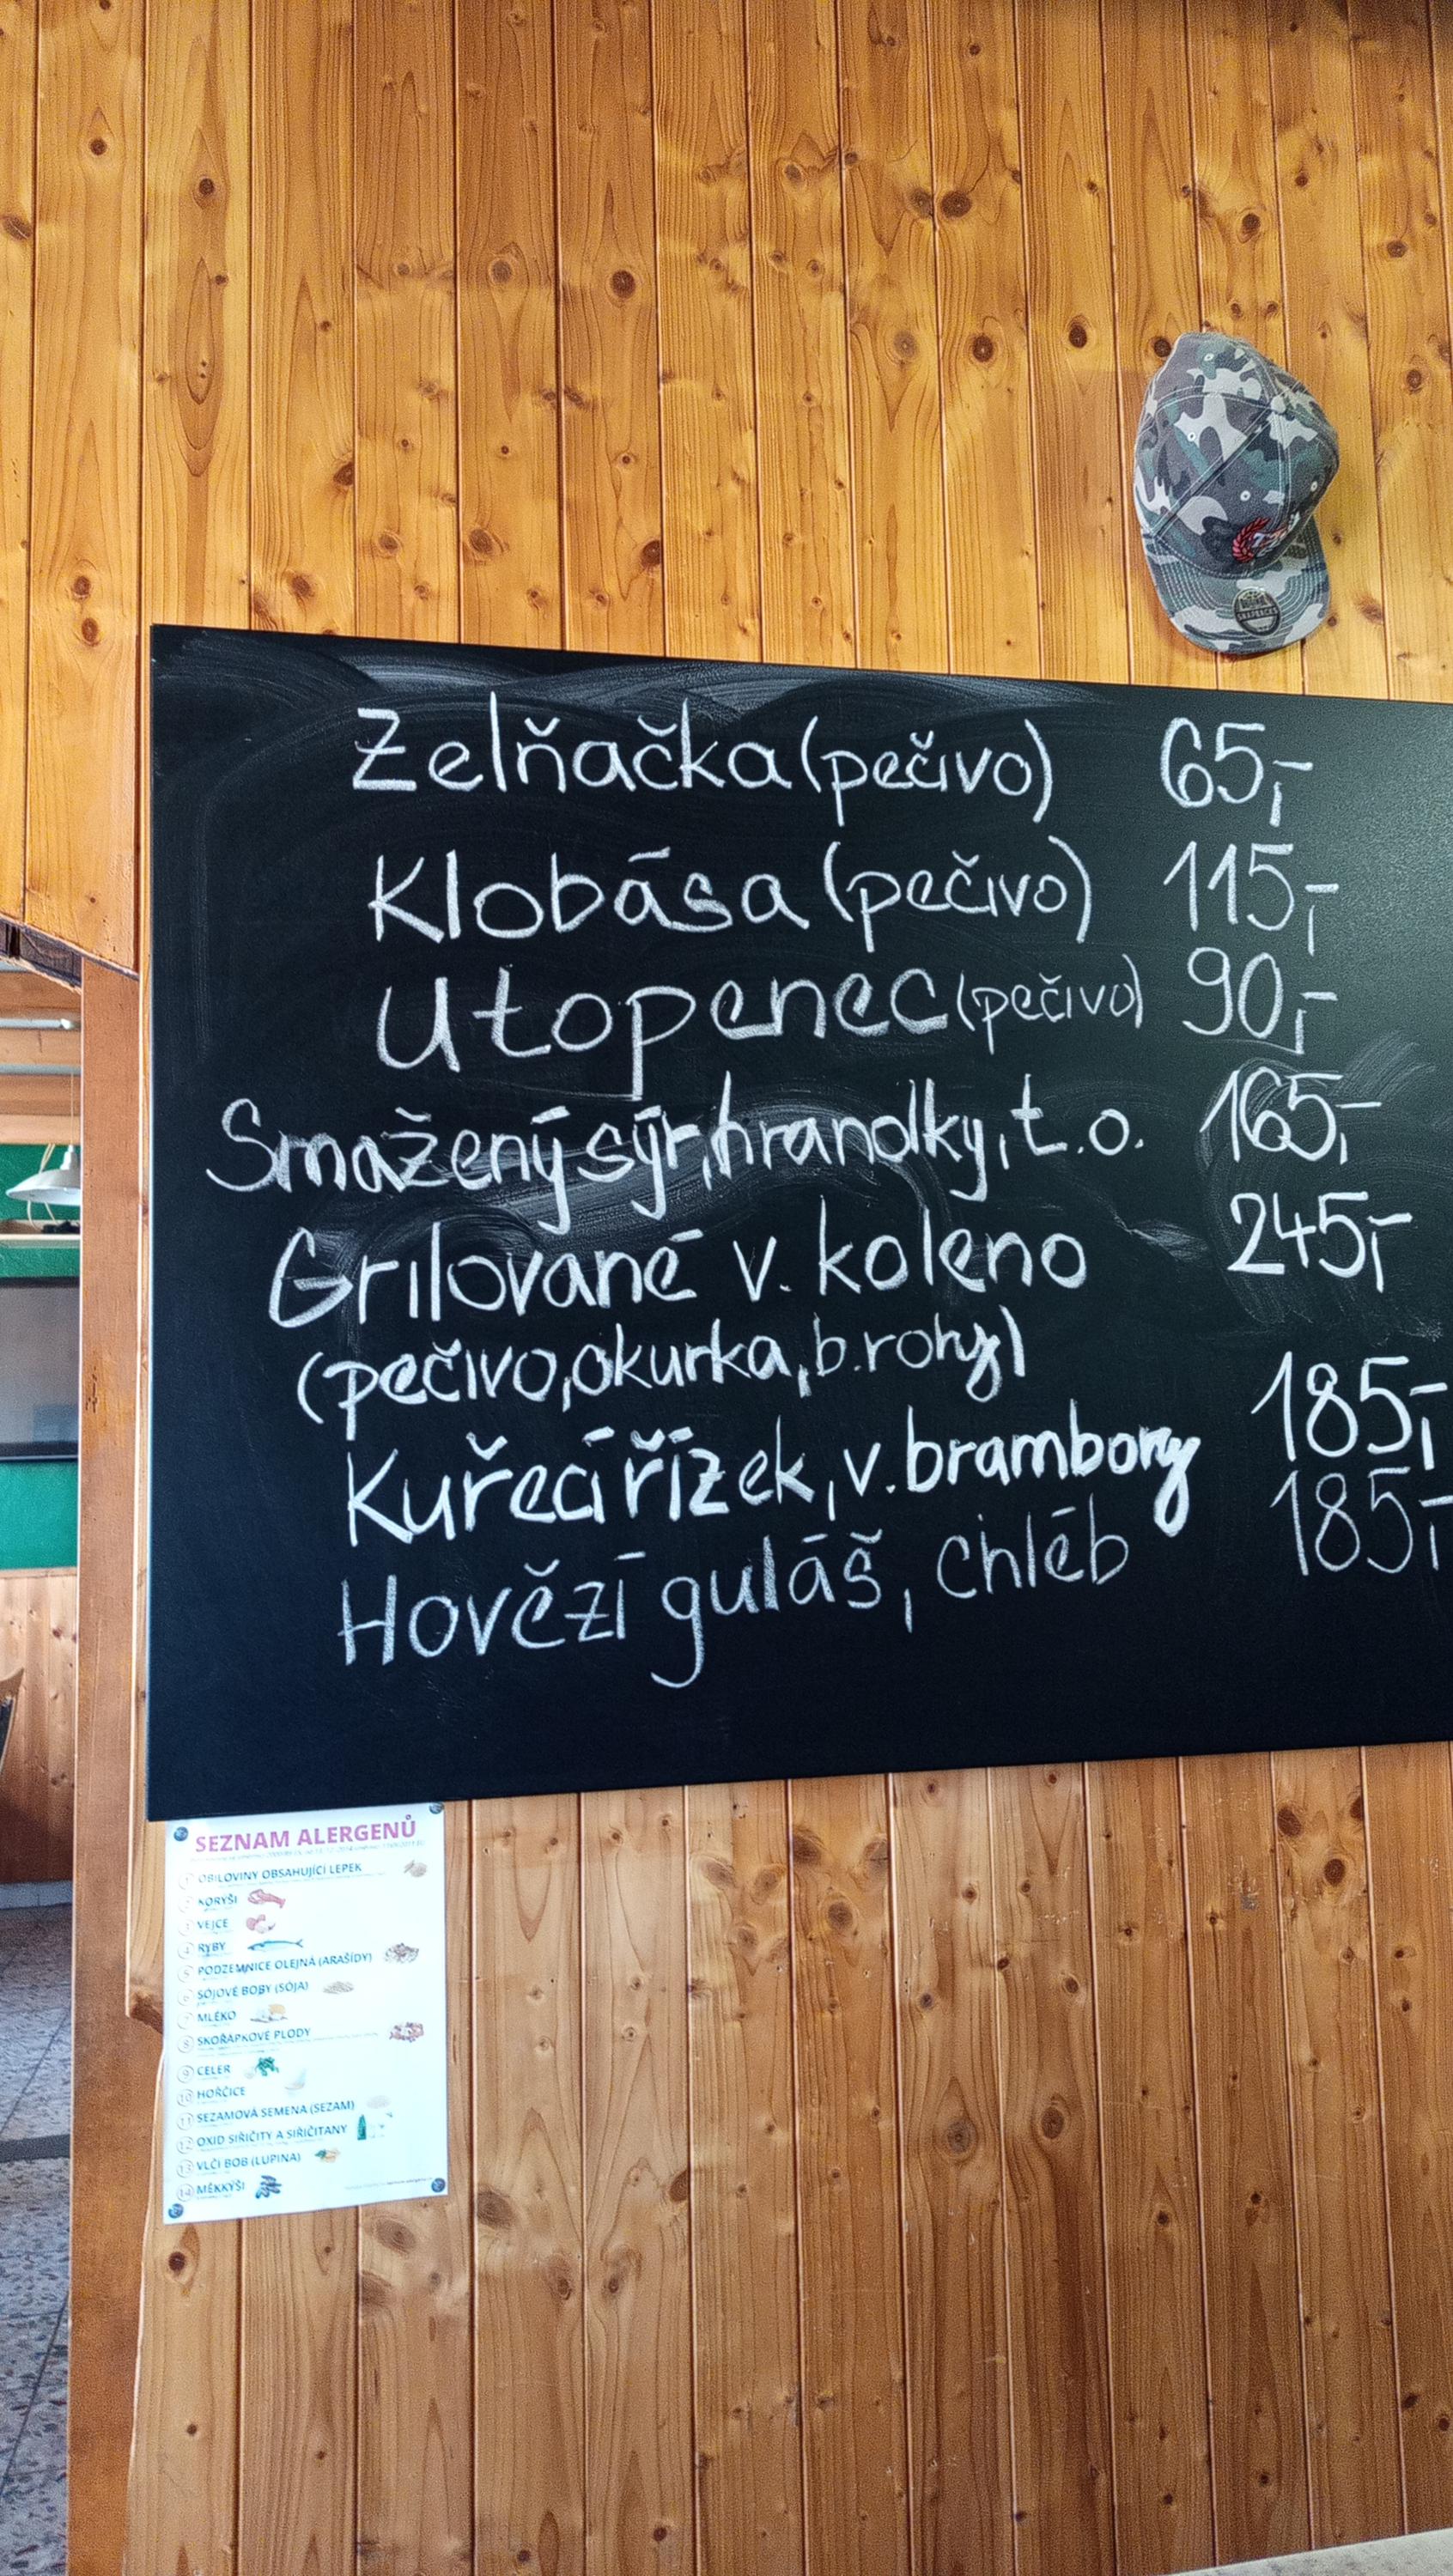 Zelňačka (pečivo) 65,-
Klobása (pečivo) 115,-
Utopenec (pečivo) 90,-
Smažený sýr, hranolky, t.o. 165,-
Grilované v. koleno 245,-
(pečivo, okurka, b. rohy)
Kuřecí řízek, v. brambory 185,-
Hovězí guláš, chléb 185,-
SEZNAM ALERGENŮ
1 OBILOVINY OBSAHUJÍCÍ LEPEK
2 KORÝŠI
3 VEJCE
4 RYBY
5 PODZEMNICE OLEJNÁ (ARAŠÍDY)
6 SÓJOVÉ BOBY (SÓJA)
7 MLÉKO
8 SKOŘÁPKOVÉ PLODY
9 CELER
10 HOŘČICE
11 SEZAMOVÁ SEMENA (SEZAM)
12 OXID SIŘIČITÝ A SIŘIČITANY
13 VLČÍ BOB (LUPINA)
14 MĚKKÝŠI